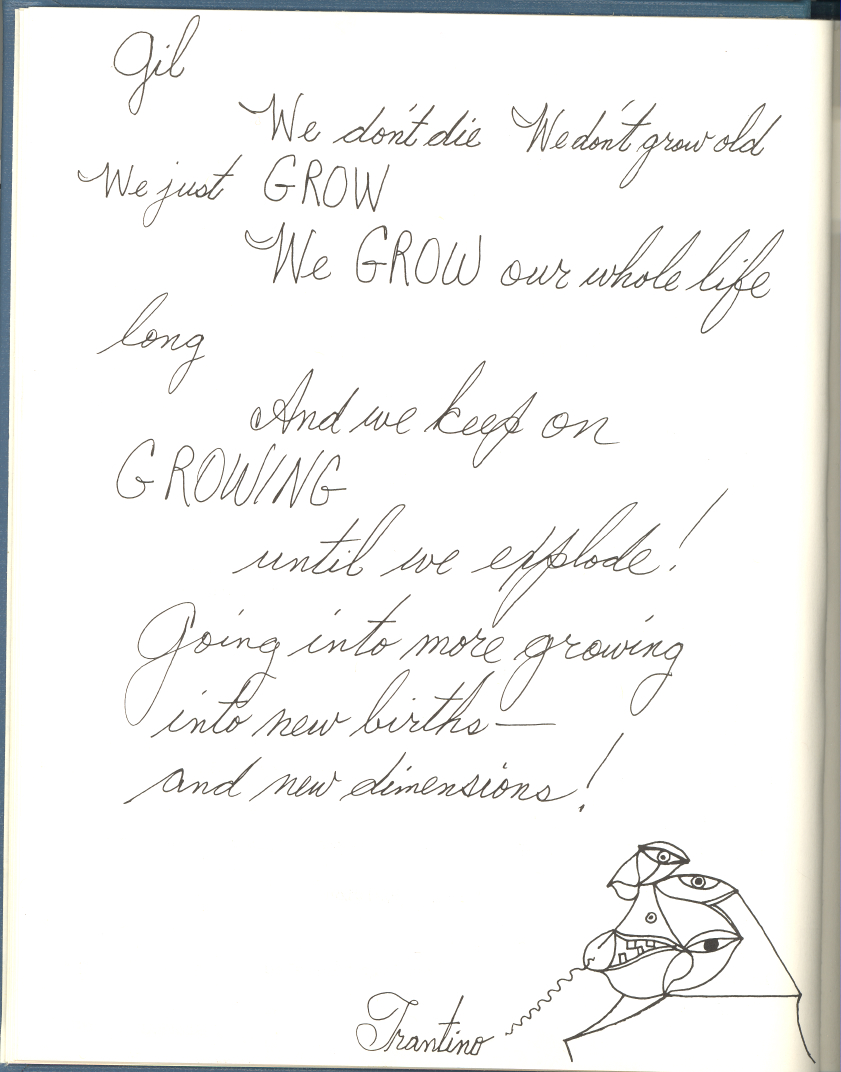 Gil
We don't die We don't grow old
We just GROW
We GROW our whole life
long
And we keep on
GROWING
until we explode!
Going into more growing
into new births—
and new dimensions!
Trantino